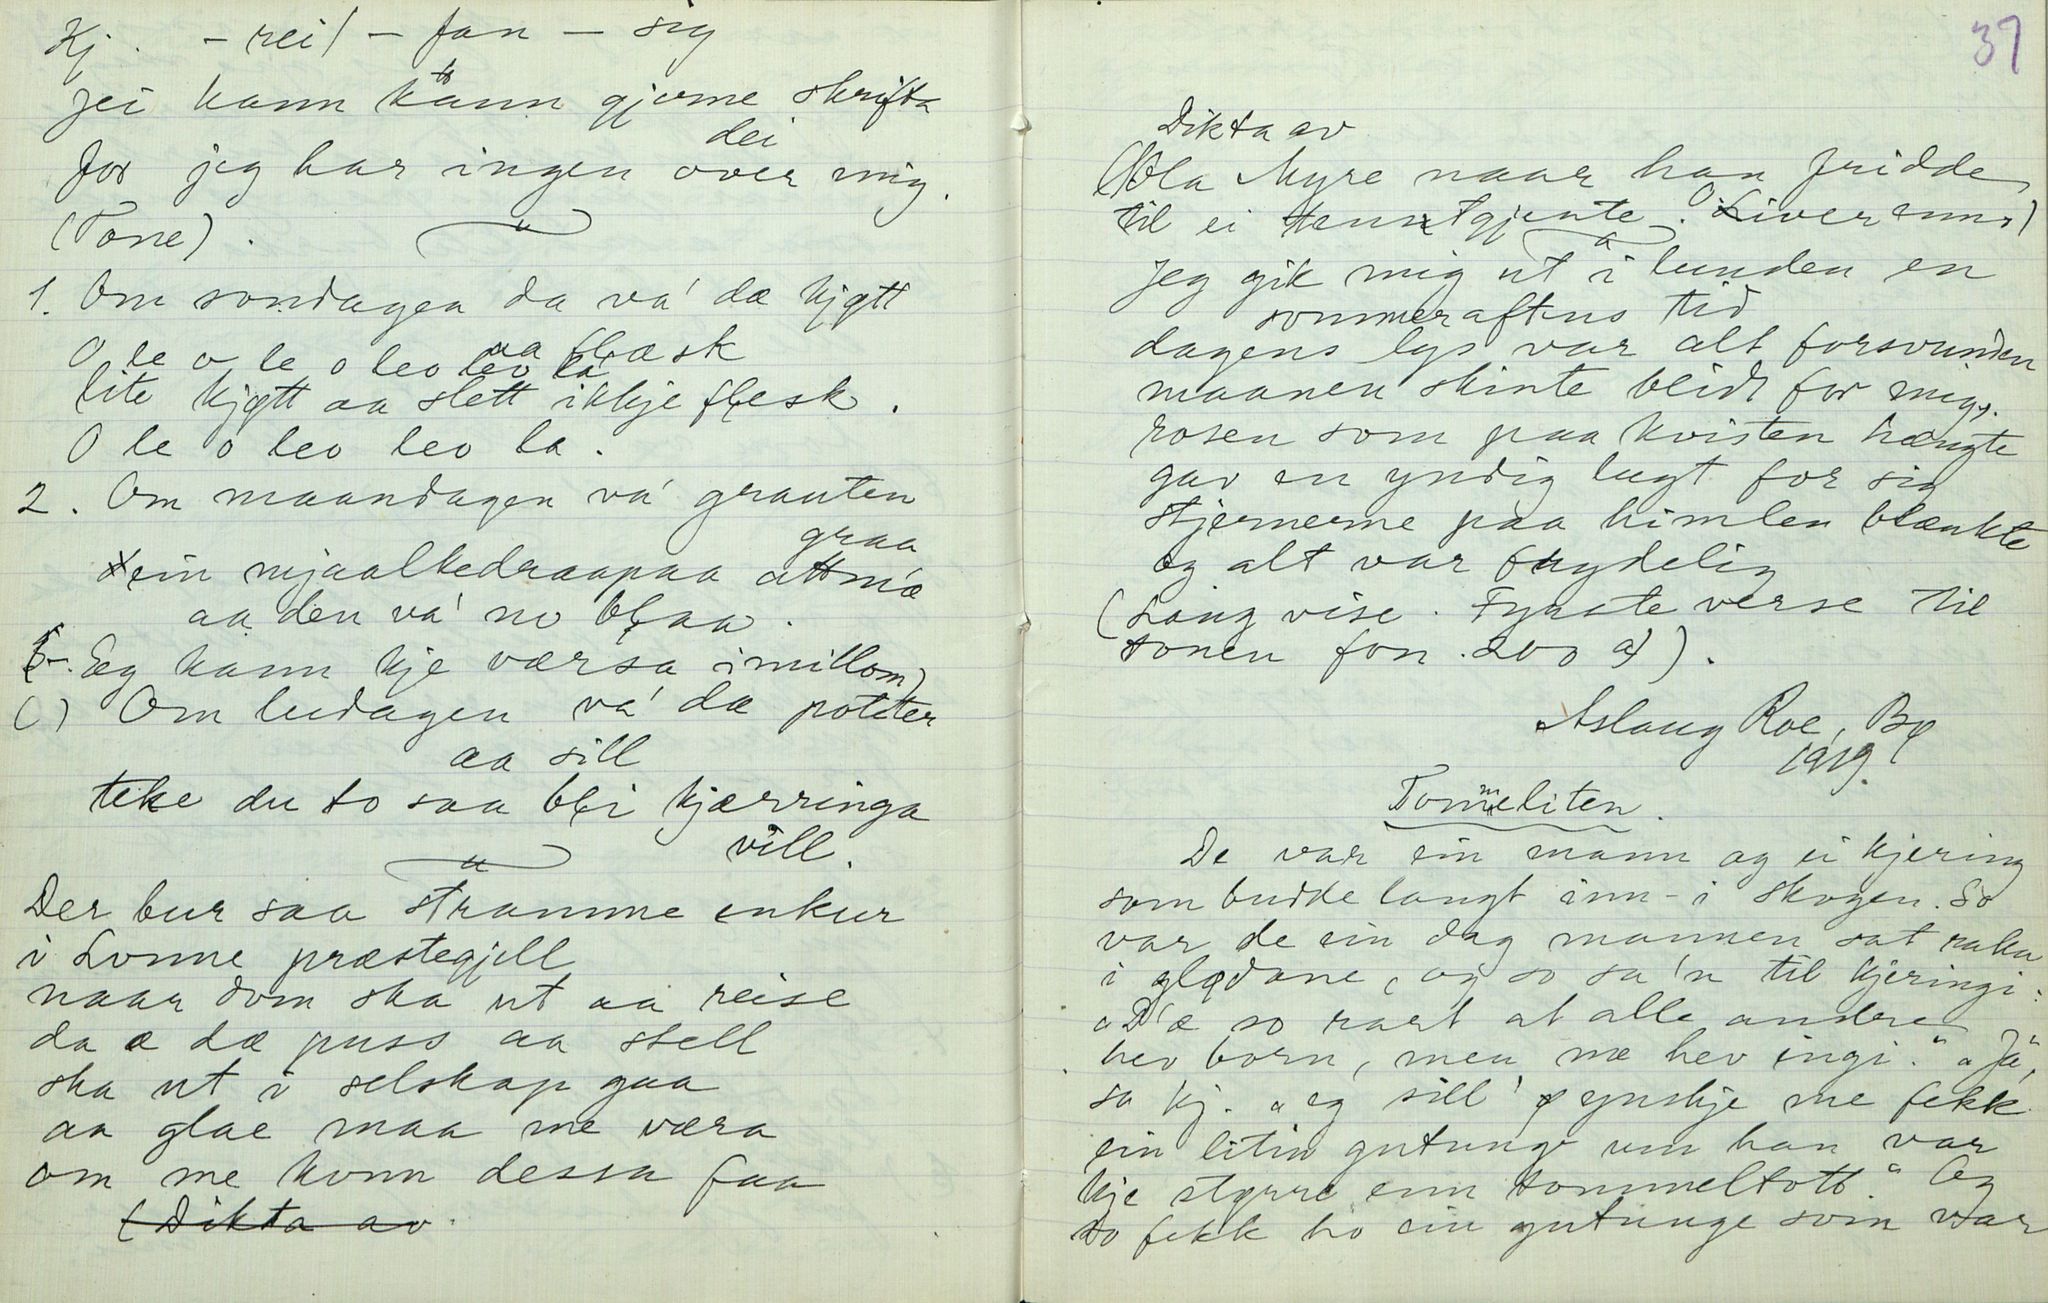 Kj. – rei / – fan – sig
jei kann kånn gjerne skrifta
dei
for jeg har ingen over mig.
(Tone).
1. Om sondagen da va' dæ kjøtt
aa flæsk
O le o le o leo leo la
lite kjøtt aa slett ikkje flesk.
O le o leo leo la.
2. Om maandagen va' grauten
graa
ein mjaalkedraapaa attmæ
aa den va' no blaa.
Eg kann kje værsa imillom)
( ) Om ludagen va' dæ poteter
aa sill
teke du to saa bli kjærringa
vill.
Der bur saa stramme enkur
i Lonne præstegjell
naar dom ska ut aa reise
da æ dæ puss aa stell
ska ut i selskap gaa
aa glae maa me væra
om me konn dessa faa
(Dikta av
37
Dikta av
(Ola Myre naar han fridde
til ei gjente. Liver enno)
Jeg gik mig ut i lunden en
sommeraftens tid
dagens lys var alt forsvunden
maanen skinte blidt for mig.
rosen som paa kvisten hængte
gav en yndig lugt for sig
stjernerne paa himlen blænkte
og alt var frydelig
(Lang vise. Fyrste verse til
tonen fon. 200 a).
Aslaug Roe, Bø
1919.
Tommeliten.
De var ein mann og ei kjering
som budde langt inn-i skogen. So
var de ein dag mannen sat raka
i glødane, og so sa'n til kjeringi:
"D'æ so rart at alle andre
hev born, men me hev ingi." "Ja",
sa kj. "eg sill' ynskje me fekk
ein liten gutunge um han var
kje større enn tommeltott." Og
so fekk ho ein gutunge som var